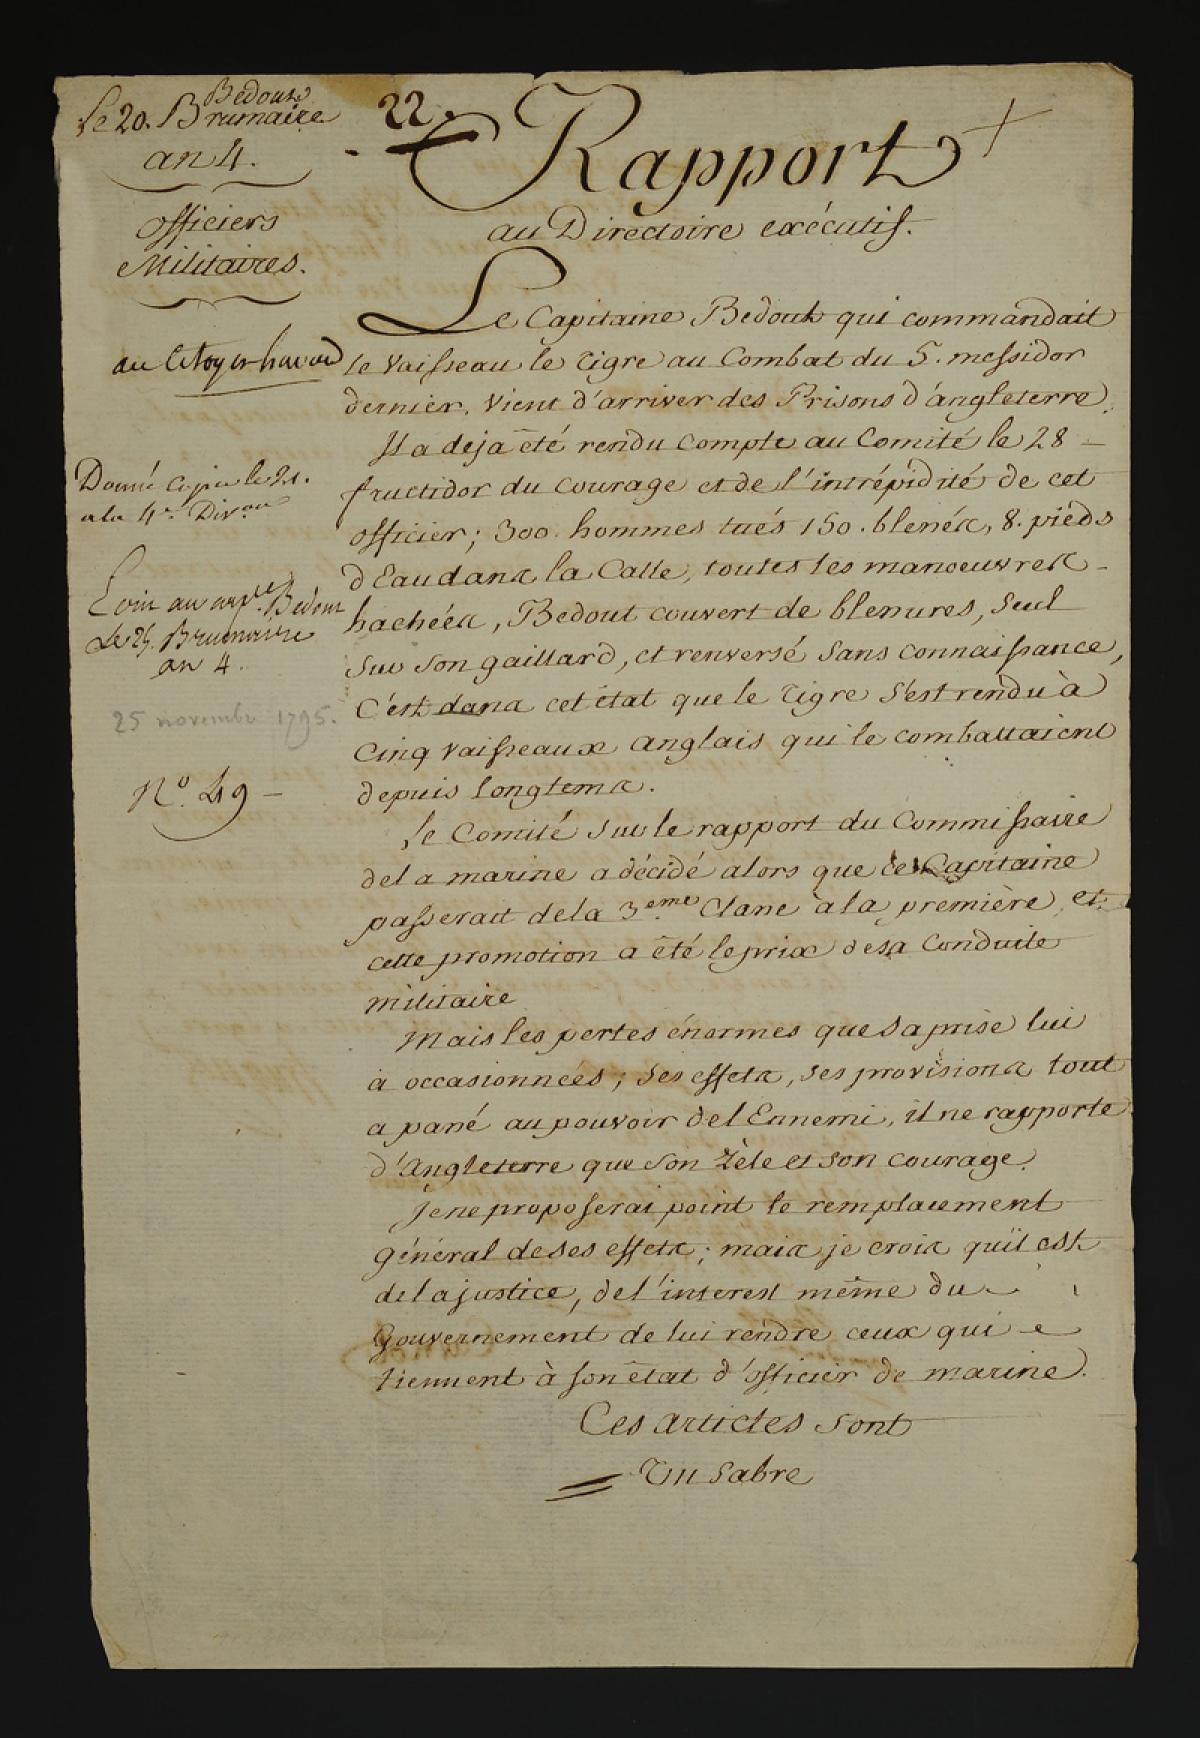 Bedout
Le 20. Brumaire
an 4.
Officiers
Militaires.
au Citoyen
Donné Copie le 21.
a la 4e. Divon
Ecrit au capte. Bedout
Le 25. Brumaire
an 4.
25 novembre 1795.
No. 49 -
22.
Rapport
au Directoire exécutif.
Le Capitaine Bedout qui commandait
le Vaisseau le Tigre au Combat du 5. messidor
dernier, vient d'arriver des Prisons d'angleterre.
Il a deja été rendu compte au Comité le 28
fructidor du courage et de l'intrépidité de cet
officier; 300 hommes tués 150. blessés, 8. pieds
d'Eau dans la Calle, toutes les manoeuvres
hachées, Bedout couvert de blessures, seul
sur son gaillard, et renversé sans connaissance,
C'est dans cet état que le Tigre s'est rendu à
Cinq vaisseaux anglais qui le combattaient
depuis longtems.
Le Comité sur le rapport du Commissaire
de la marine a décidé alors que ce Capitaine
passerait de la 3eme Classe à la première, et
cette promotion a été le prix de sa Conduite
militaire
Mais les pertes énormes que sa prise lui
a occasionnées; ses effets, ses provisions tout
a passé au pouvoir de l'Ennemi, il ne rapporte
d'Angleterre que son zèle et son courage.
Je ne proposerai point le remplacement
général de ses effets; mais je crois qu'il est
de la justice, de l'interest même du
Gouvernement de lui rendre ceux qui
tiennent à son état d'officier de marine.
Ces articles sont
Un sabre